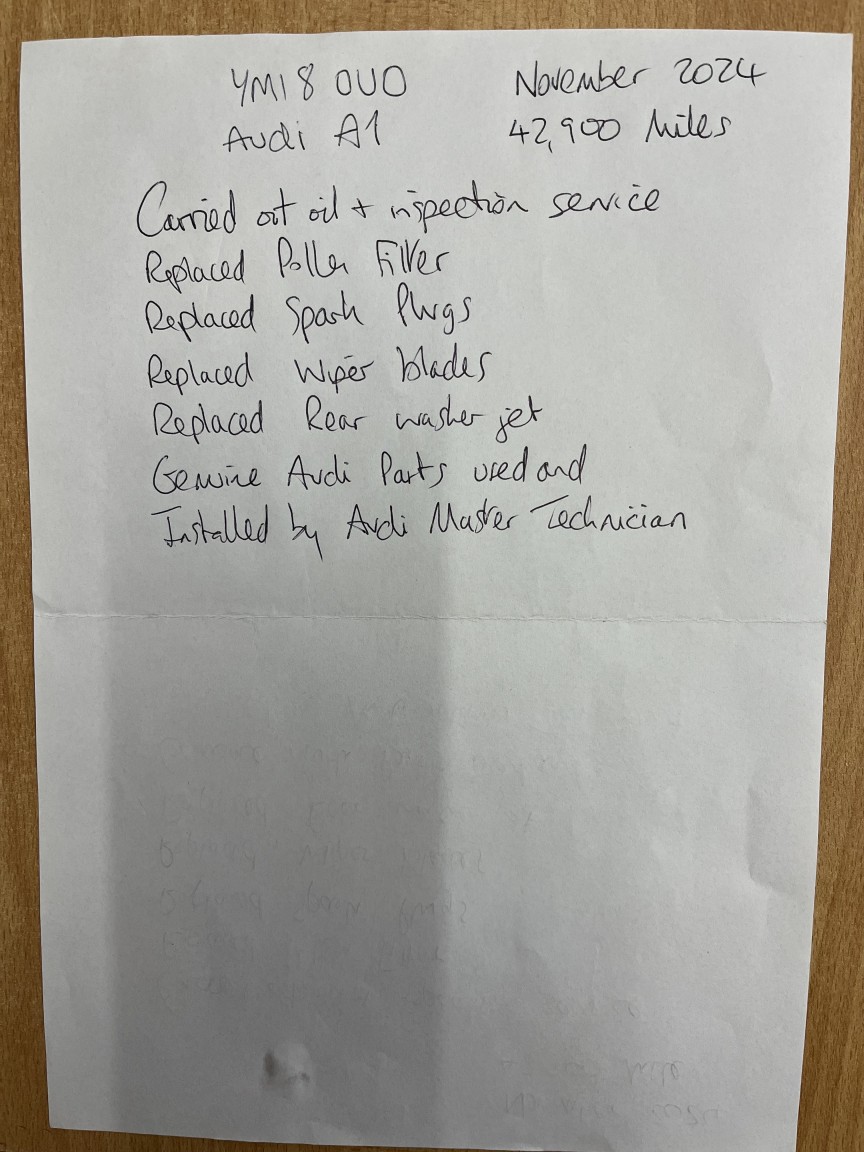 YM18 OUO
Audi A1
November 2024
42,900 Miles
Carried out oil + inspection service
Replaced Pollen Filter
Replaced Spark Plugs
Replaced Wiper blades
Replaced Rear washer jet
Genuine Audi Parts used and
Installed by Audi Master Technician